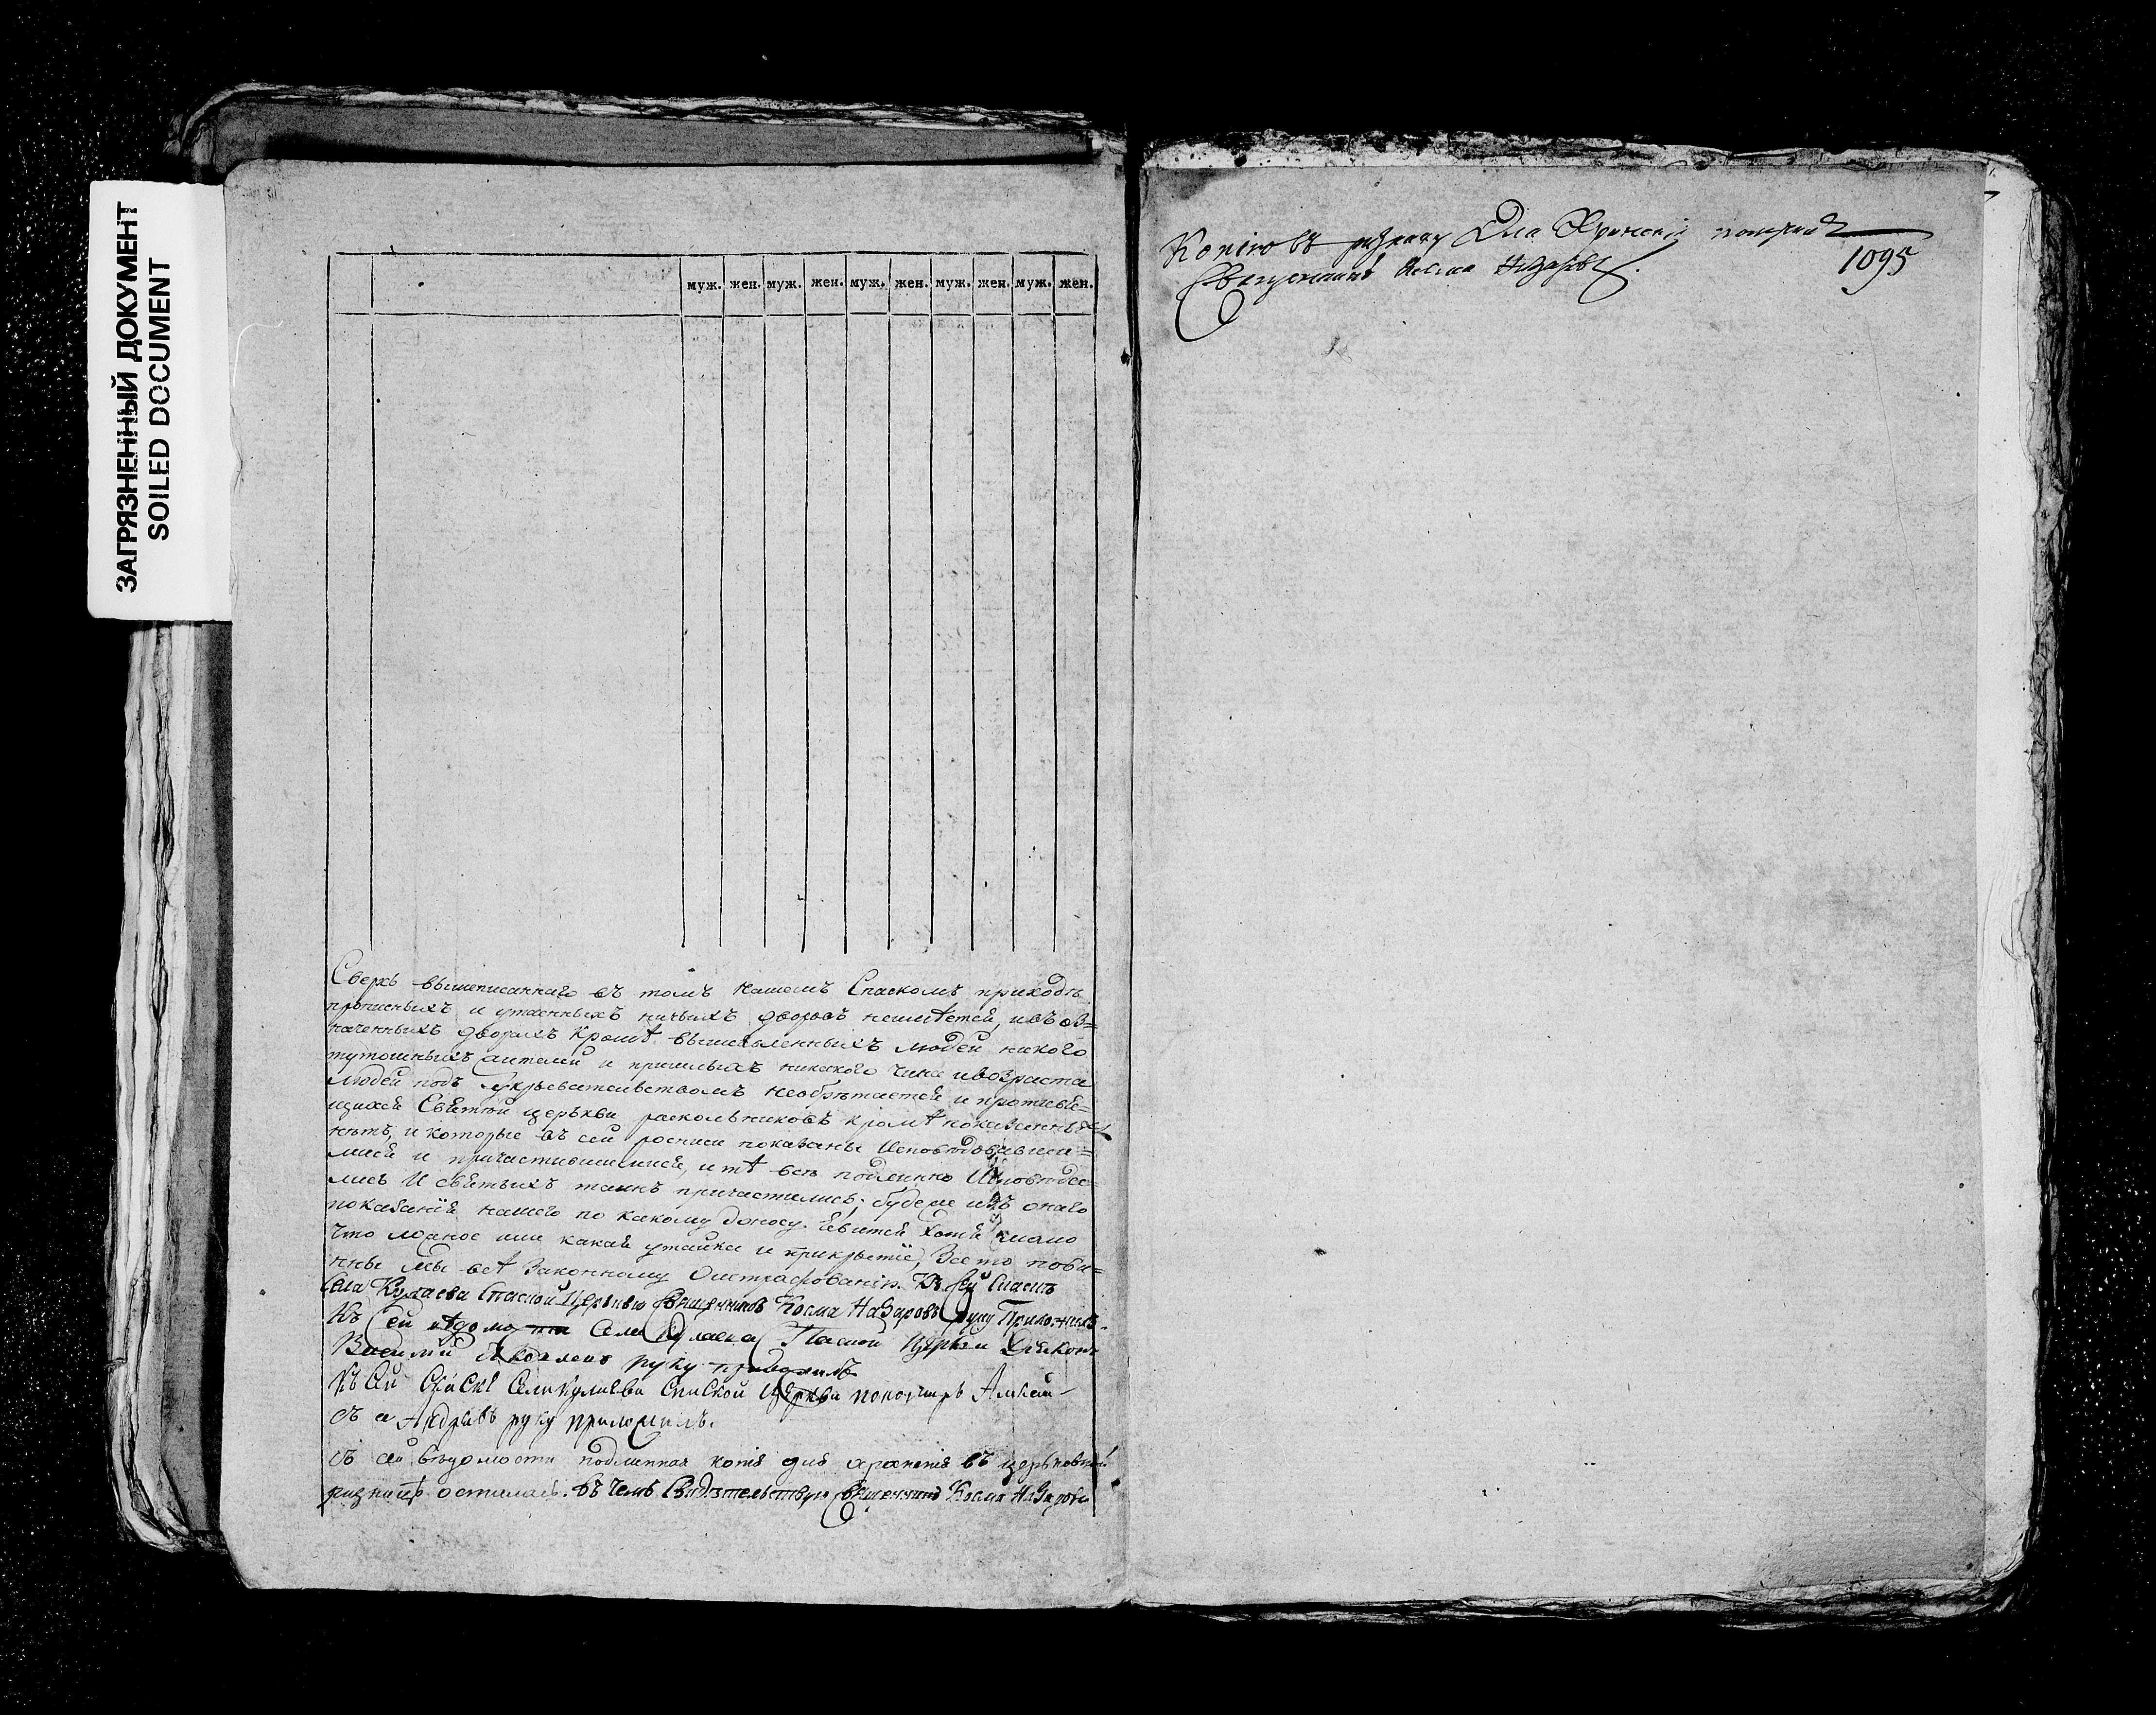 ЗАГРЯЗНЕННЫЙ ДОКУМЕНТ
SOILED DOCUMENT
муж. жен. муж. жен. муж. жен. муж. жен. муж. жен.
Сверхъ вышеписаннаго въ томъ нашемъ Спаскомъ приходѣ
прописныхъ и утаенныхъ ничьихъ дворовъ неимѣетса, и въ оз=
наченныхъ дворахъ кромѣ вышеявленныхъ людей никого
тутошныхъ жителей и пришлыхъ никакого чина и возраста
людей подъ укрывателствомъ необрѣтается и противя=
щихся Святой церькви раскольниковъ кромѣ показанныхъ
нѣтъ, и которые въ сей росписи показаны исповѣдовавши=
мися и причастившимися, и тѣ всѣ подленно исповѣдо=
лись и святыхъ таинъ причастились; будеже изъ онаго
показанія нашего по какому доносу явится хотя мало
что ложное или какая утайка и прикрытіе, за то пови=
нны мы всѣ законному оштрафованію. Къ сей
села Кулаева Спаской церькви священникъ Косма Назаровъ руку приложилъ.
Къ сей вѣдомости села Кулаева Спаской церкви дьяконъ
Василий руку приложилъ
Къ сей села Кулаева Спаской церкви пономарь
Андреевъ руку приложилъ.
съ сей вѣдомости подлинная копія для храненія въ церьковной
ризницѣ осталась. въ чемъ свидѣтельствую священникъ Косма Назаровъ
Копію въ ризницу для храненія
Священникъ Косма Назаровъ.
1095